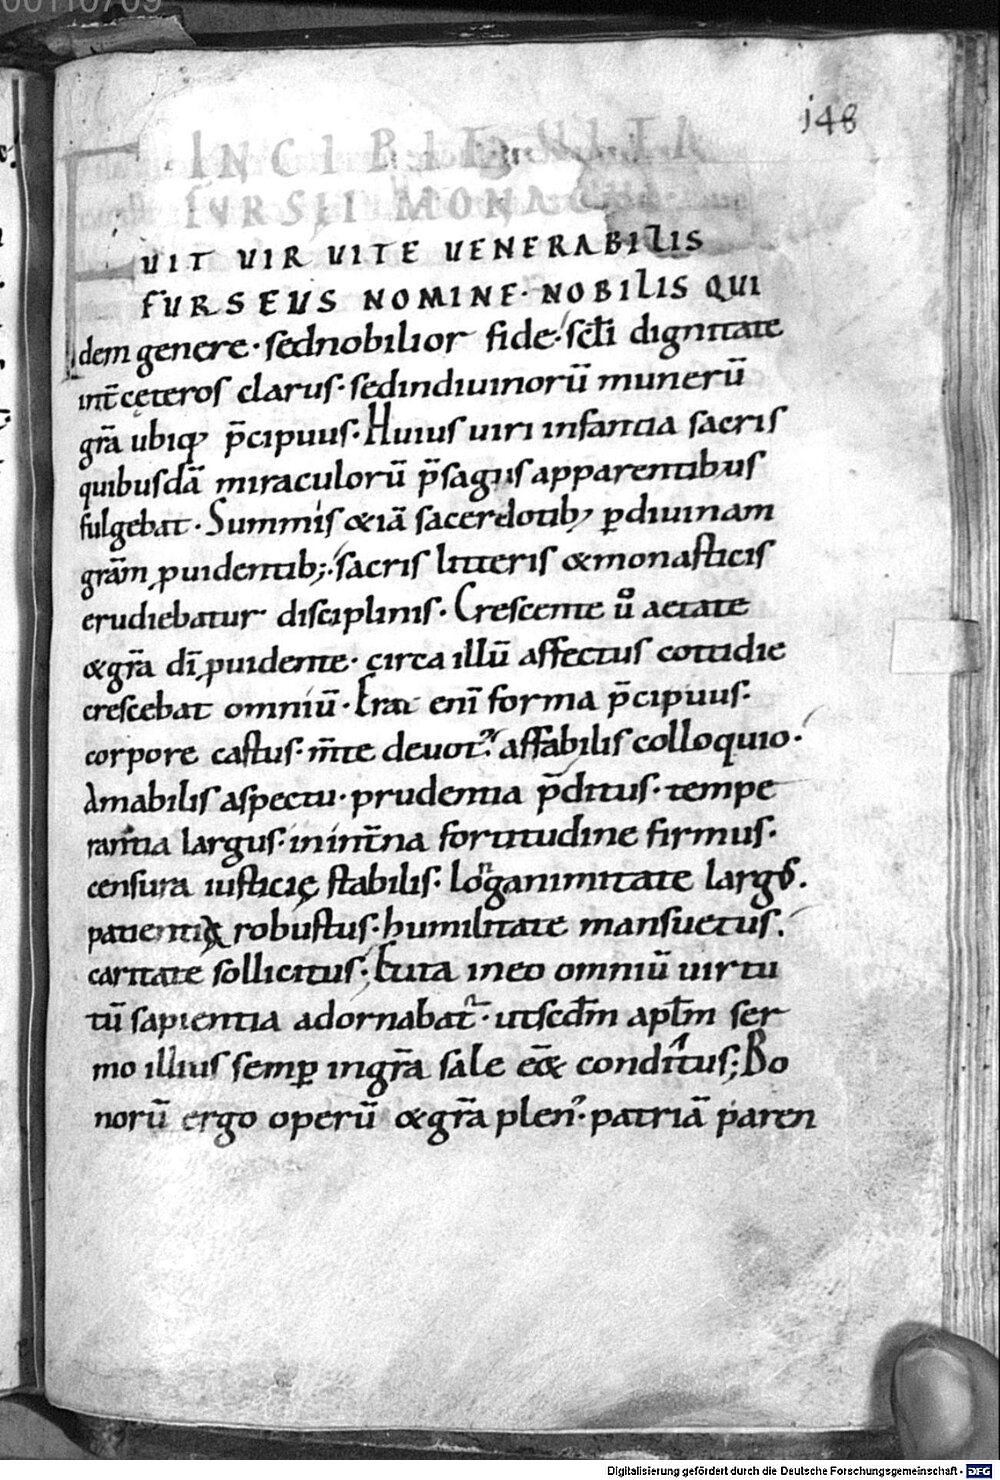 00110709
148
INCIPIT VITA
FVRSEI MONACHI
FUIT UIR UITE UENERABILIS
FURSEUS NOMINE· NOBILIS QUI
dem genere· sed nobilior fide· scłi dignitate
int̄ cęteros clarus· sed in diuinorū munerū
gr̄a ubiq; p̄cipuus· Huius uiri infantia sacris
quibusdā miraculorū p̄sagiis apparentibus
fulgebat· Summis &iā sacerdotib; ꝑ diuinam
grām ꝓuidentib;· sacris litteris & monasticis
erudiebatur disciplinis· Crescente ů aetate
& gr̄a dī ꝓuidente· circa illū affectus cottidie
crescebat omniū· Erat enī forma p̄cipuus·
corpore castus· m̄te deuot᾿· affabilis colloquio·
Amabilis aspectu· prudentia p̄ditus· tempe
rantia largus· in int̄na fortitudine firmus·
censura iusticię stabilis· longanimitate largus·
patientia robustus· humilitate mansuetus·
caritate sollicitus· Et ita in eo omniū uirtu
tū sapientia adornabat᾿· ut scd̄m apłm ser
mo illius semꝑ in gr̄a sale eēt conditus; Bo
norū ergo operū & gr̄a plen᾿· patriā paren
Digitalisierung gefördert durch die Deutsche Forschungsgemeinschaft - DFG